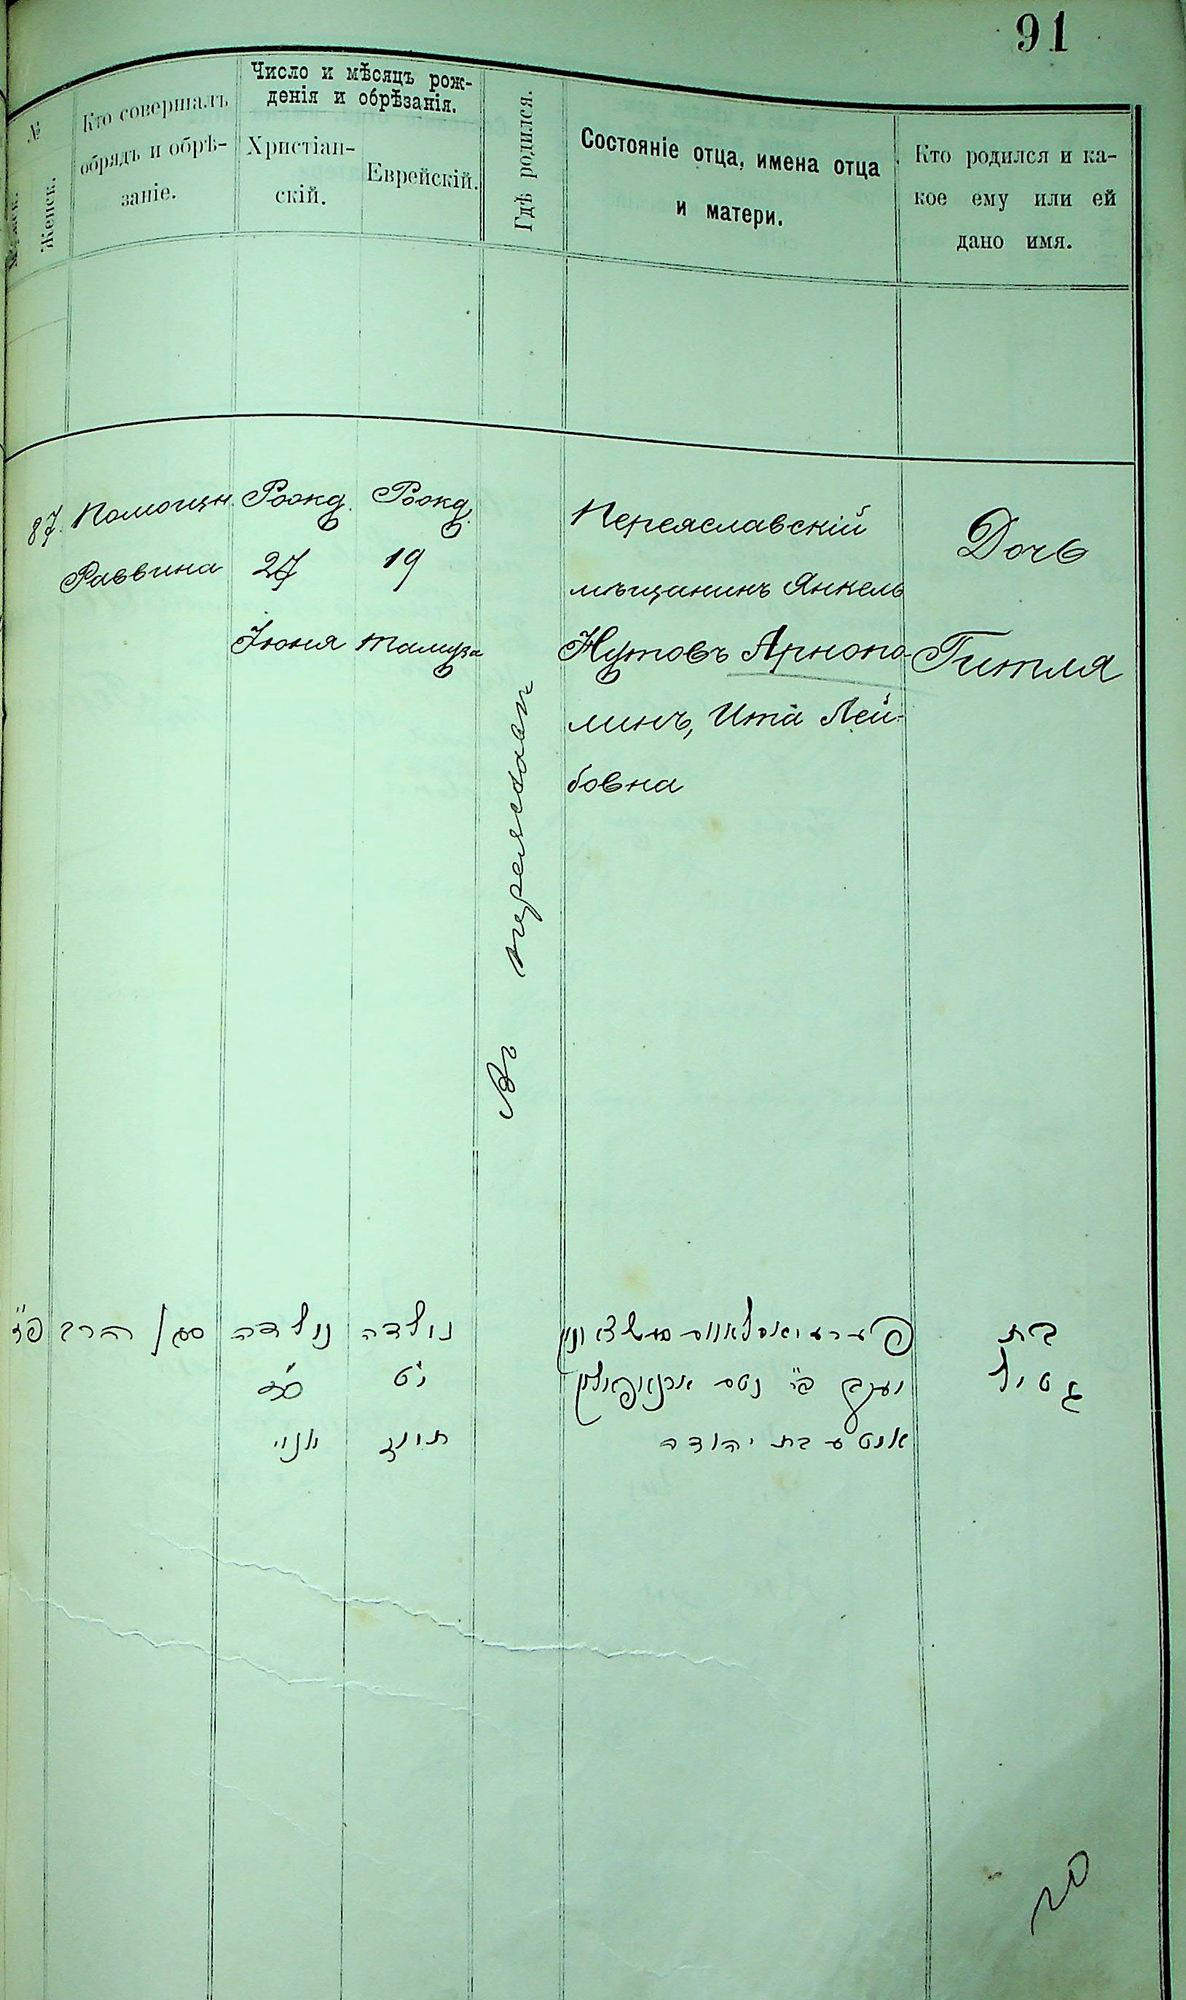 91
№
Мужск.
Женск.
Кто совершалъ
обрядъ и обрѣ-
заніе.
Число и мѣсяцъ рож-
денія и обрѣзанія.
Христіан-
скій.
Еврейскій.
Гдѣ родился.
Состояніе отца, имена отца
и матери.
Кто родился и ка-
кое ему или ей
дано имя.
87.
Помощн.
Раввина
Рожд.
27
Іюня
Рожд.
19
Тамуза
Въ Переяславѣ
Переяславскій
мѣщанинъ Янкель
Нутовъ Арнопо-
линъ, Ита Лей-
бовна
Дочь
Гитля
פ״ז
סגן הרב
נולדה
כ״ז
יוני
נולדה
י״ט
תמוז
פערעיאסלאווס
יעקב ב״ נטס ארנאפאלין
איטע בת יהודה
בת
גיטל